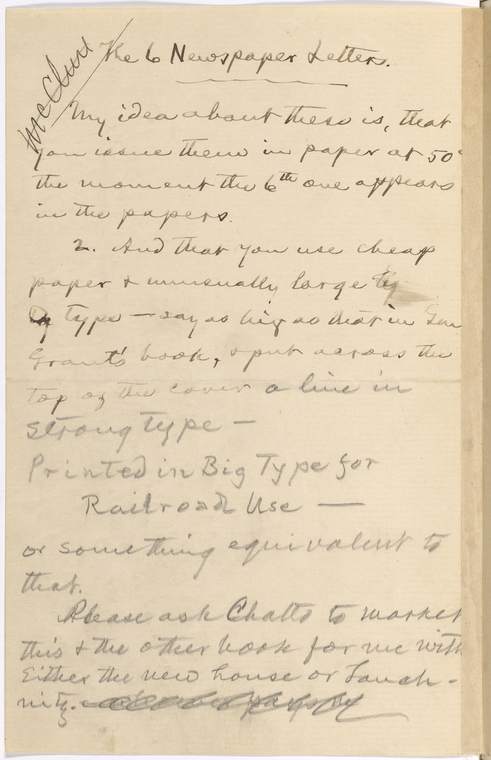 McClure
The 6 Newspaper Letters.
My idea about these is, that
you issue them in paper at 50c
the moment the 6th one appears
in the papers.
2. And that you use cheap
paper & unusually large ty
type — say as big as that in Gen
Grant's book, & put across the
top of the cover a line in
strong type —
Printed in Big Type for
Railroad Use —
or something equivalent to
that.
Please ask Chatto to market
this & the other book for me with
Either the new house or Tauch-
nitz.